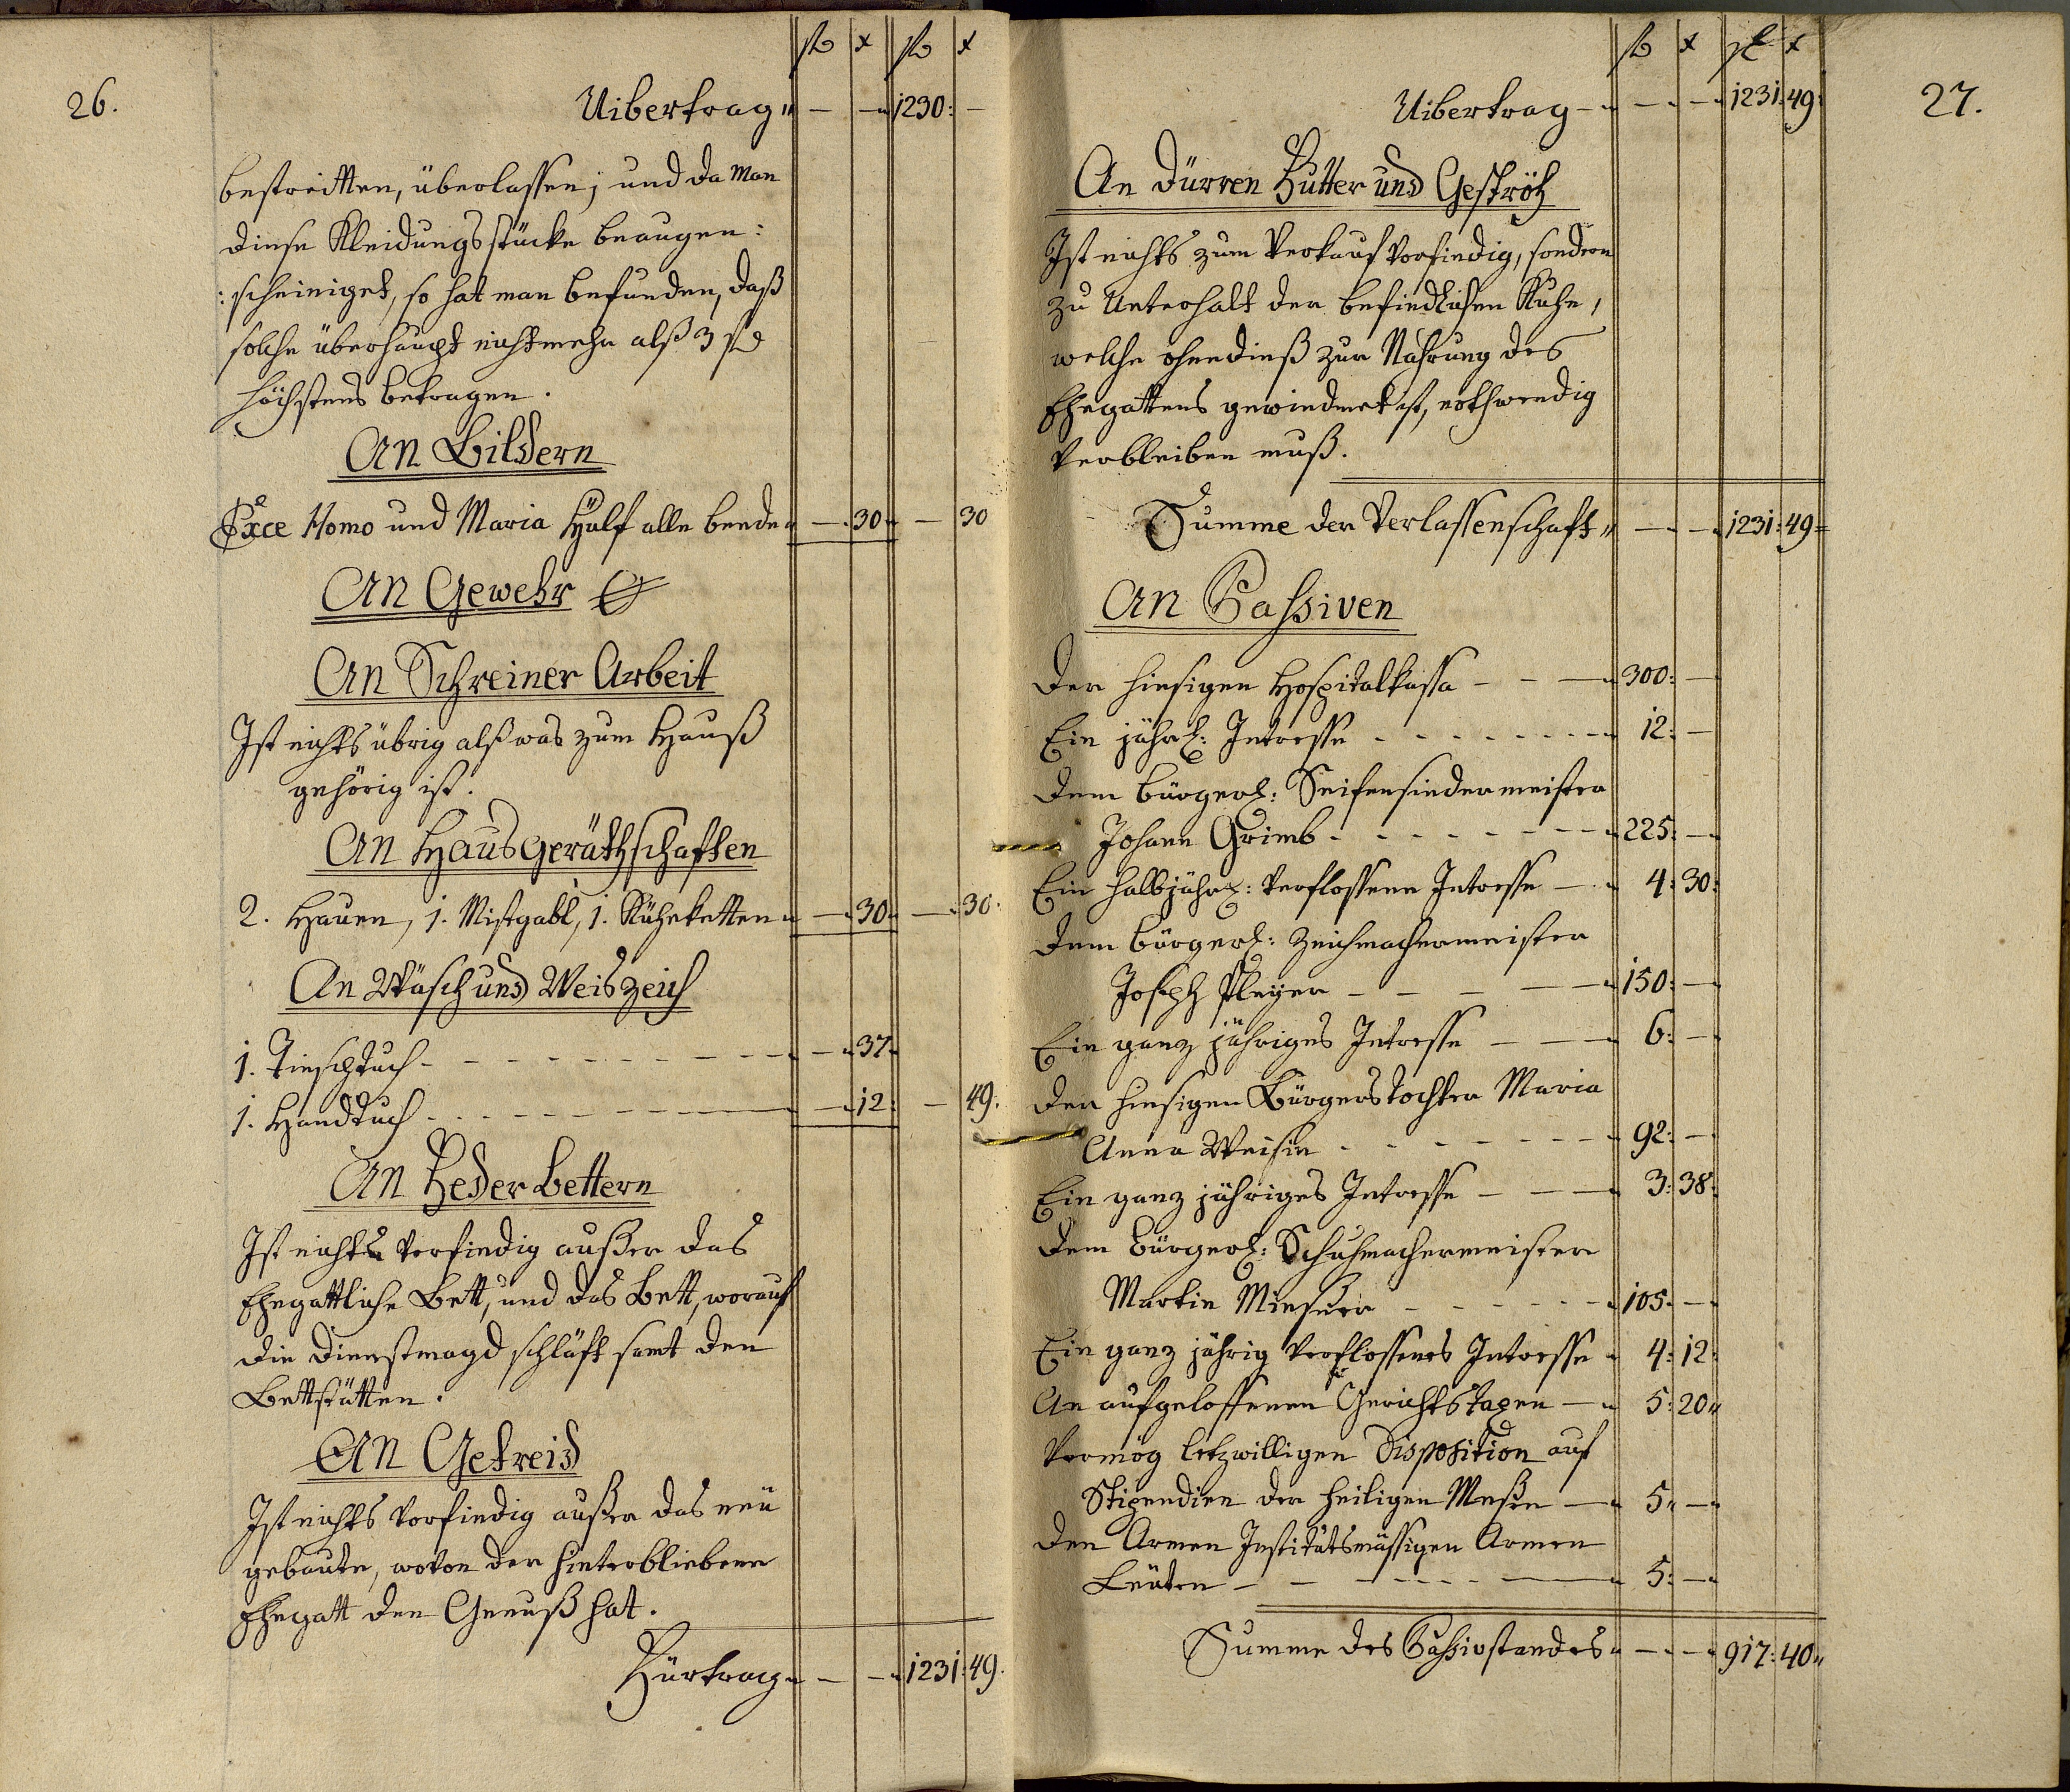 fl x fl x
26.
Uibertrag " — — 1230: —
bestritten, überlassen; und da man
diese Kleidungsstücke beaugen:
:scheiniget, so hat man befunden, daß
solche überhaupt nicht mehr alß 3 fl
höchstens betragen.
An Bildern
Exce Homo und Maria Hülf alle beede — 30 — 30
An Gewehr
An Schreiner Arbeit
Ist nichts übrig alß was zum Hauß
gehörig ist.
An Hausgeräthschaften
2. Hauen, 1. Mistgabl, 1. Kühketten — 30 — 30.
An Wäsch und Weiszeich
1. Tieschtuch — — 37
1. Handtuch — — 12: — 49.
An Feder Bettern
Ist nichts vorfindig außer das
Ehegattliche Bett, und das Bett, worauf
die Dienstmagd schläft samt den
Bettstätten.
An Getreid
Ist nichts vorfindig außer das neü
gebaute, wovon der hinterbliebene
Ehegatt den Genuß hat.
Fürtrag — — 1231: 49.
fl x fl x
27.
Uibertrag — — — 1231: 49:
An Dürren Futter und Geströh
Ist nichts zum Verkauf vorfindig, sondern
zu Unterhalt der befindlichen Kuhe,
welche ohnedieß zur Nahrung des
Ehegattens gewiedmet ist, nothwendig
verbleiben muß.
Summe der Verlassenschaft " — — 1231: 49=
An Passiven
Der hiesigen Hospitalkassa — — — 300: —
Ein jährl: Intresse — 12: —
Dem bürgerl: Seifensiedermeister
Johann Grimb — 225: —
Ein halbjährl: verflossene Intresse — 4: 30:
Dem bürgerl: Zeichmachermeister
Joseph Pleyer — 150: —
Ein ganz jähriges Intresse — 6: —
Der hiesigen Bürgerstochter Maria
Anna Weisin — 92: —
Ein ganz jähriges Intresse — 3: 38:
Dem bürgerl: Schuhmachermeister
Martin — 105: —
Ein ganz jährig verflossenes Intresse 4: 12:
An aufgeloffenen Gerichtstaxen — 5: 20 "
Vermög letzwilligen Disposition auf
Stipendien der heiligen Meßen — 5 " —
Den Armen Institutsmässigen Armen
Leüten — 5: —
Summe des Passivstandes — — 917: 40 "